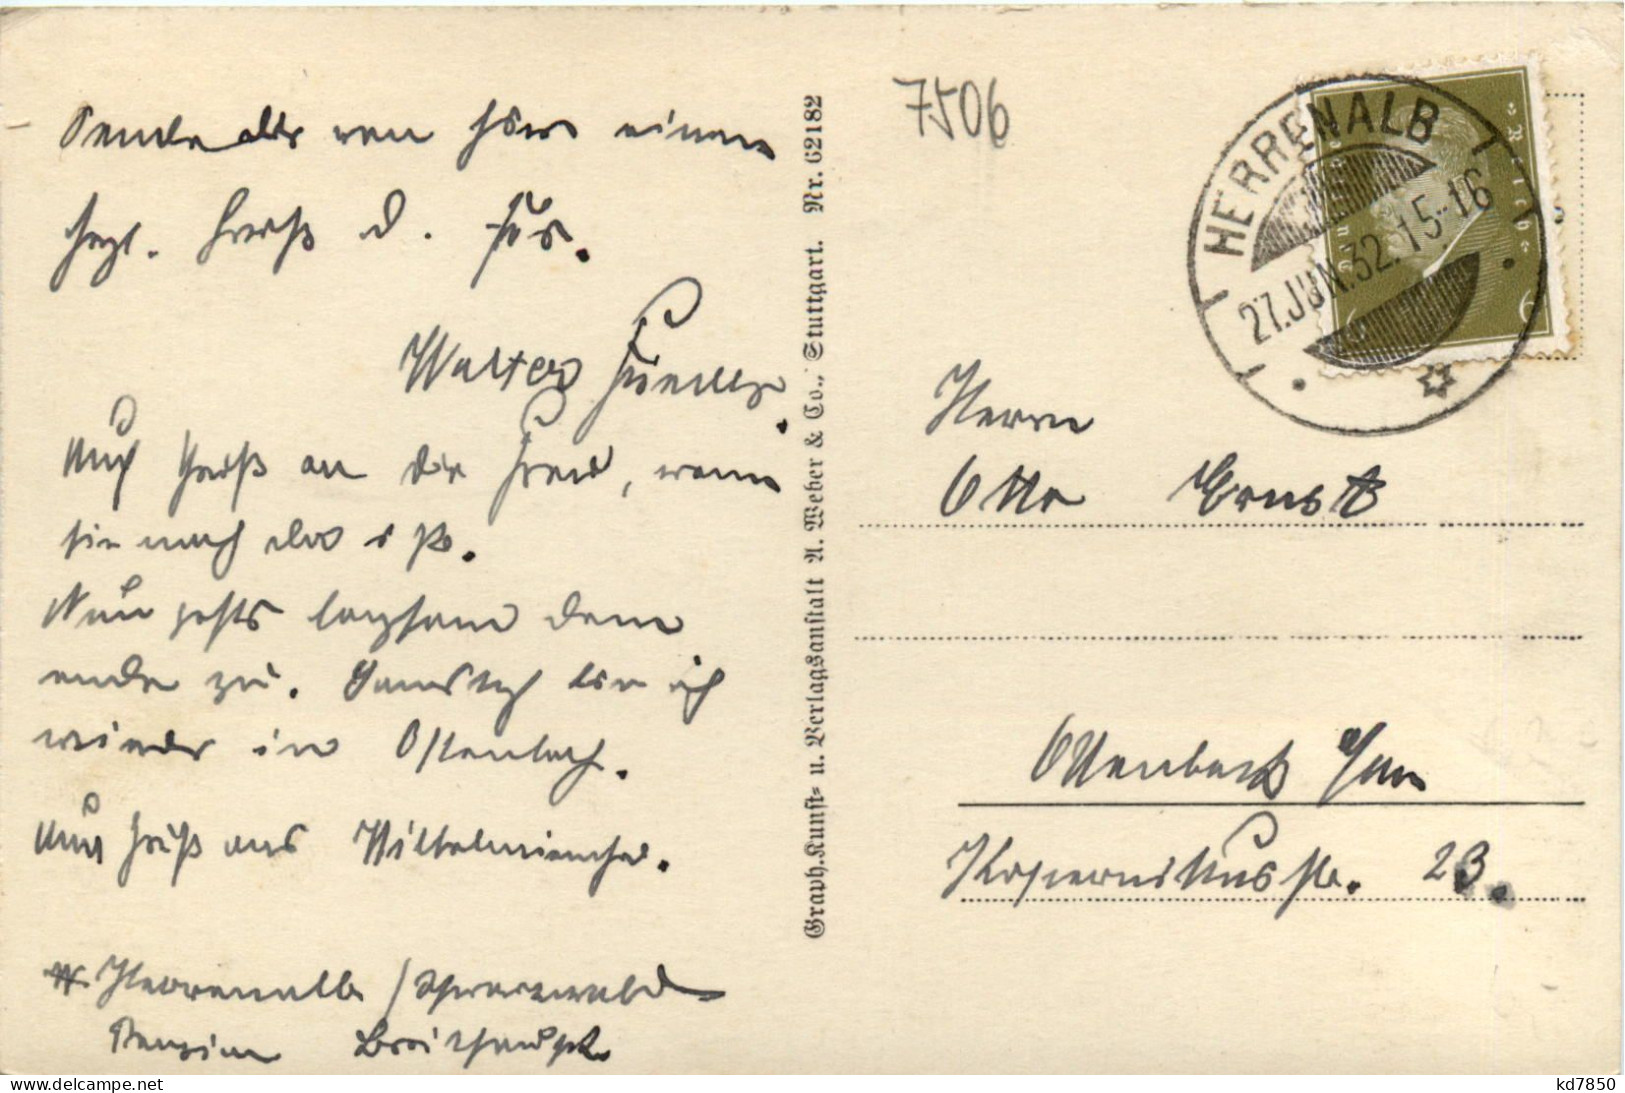 Sende dir von hier einen
herzl. Gruß d. Frs.
Walter
Auch Gruß an die Frau, wenn
sie noch da ist.
Nun gehts langsam dem
ende zu. Samstag bin ich
wieder in Offenbach.
Auch Gruß aus
Herrenalb / Schwarzwald
Pension Breithaupt
Graph. Kunst= u. Verlagsanstalt A. Weber & Co., Stuttgart. Nr. 62182
7506
HERRENALB
27.JUN.32.15-16
Herrn
Otto Ernst
Offenbach a/Main
Kopernikusstr. 23.
www.delcampe.net
kd7850